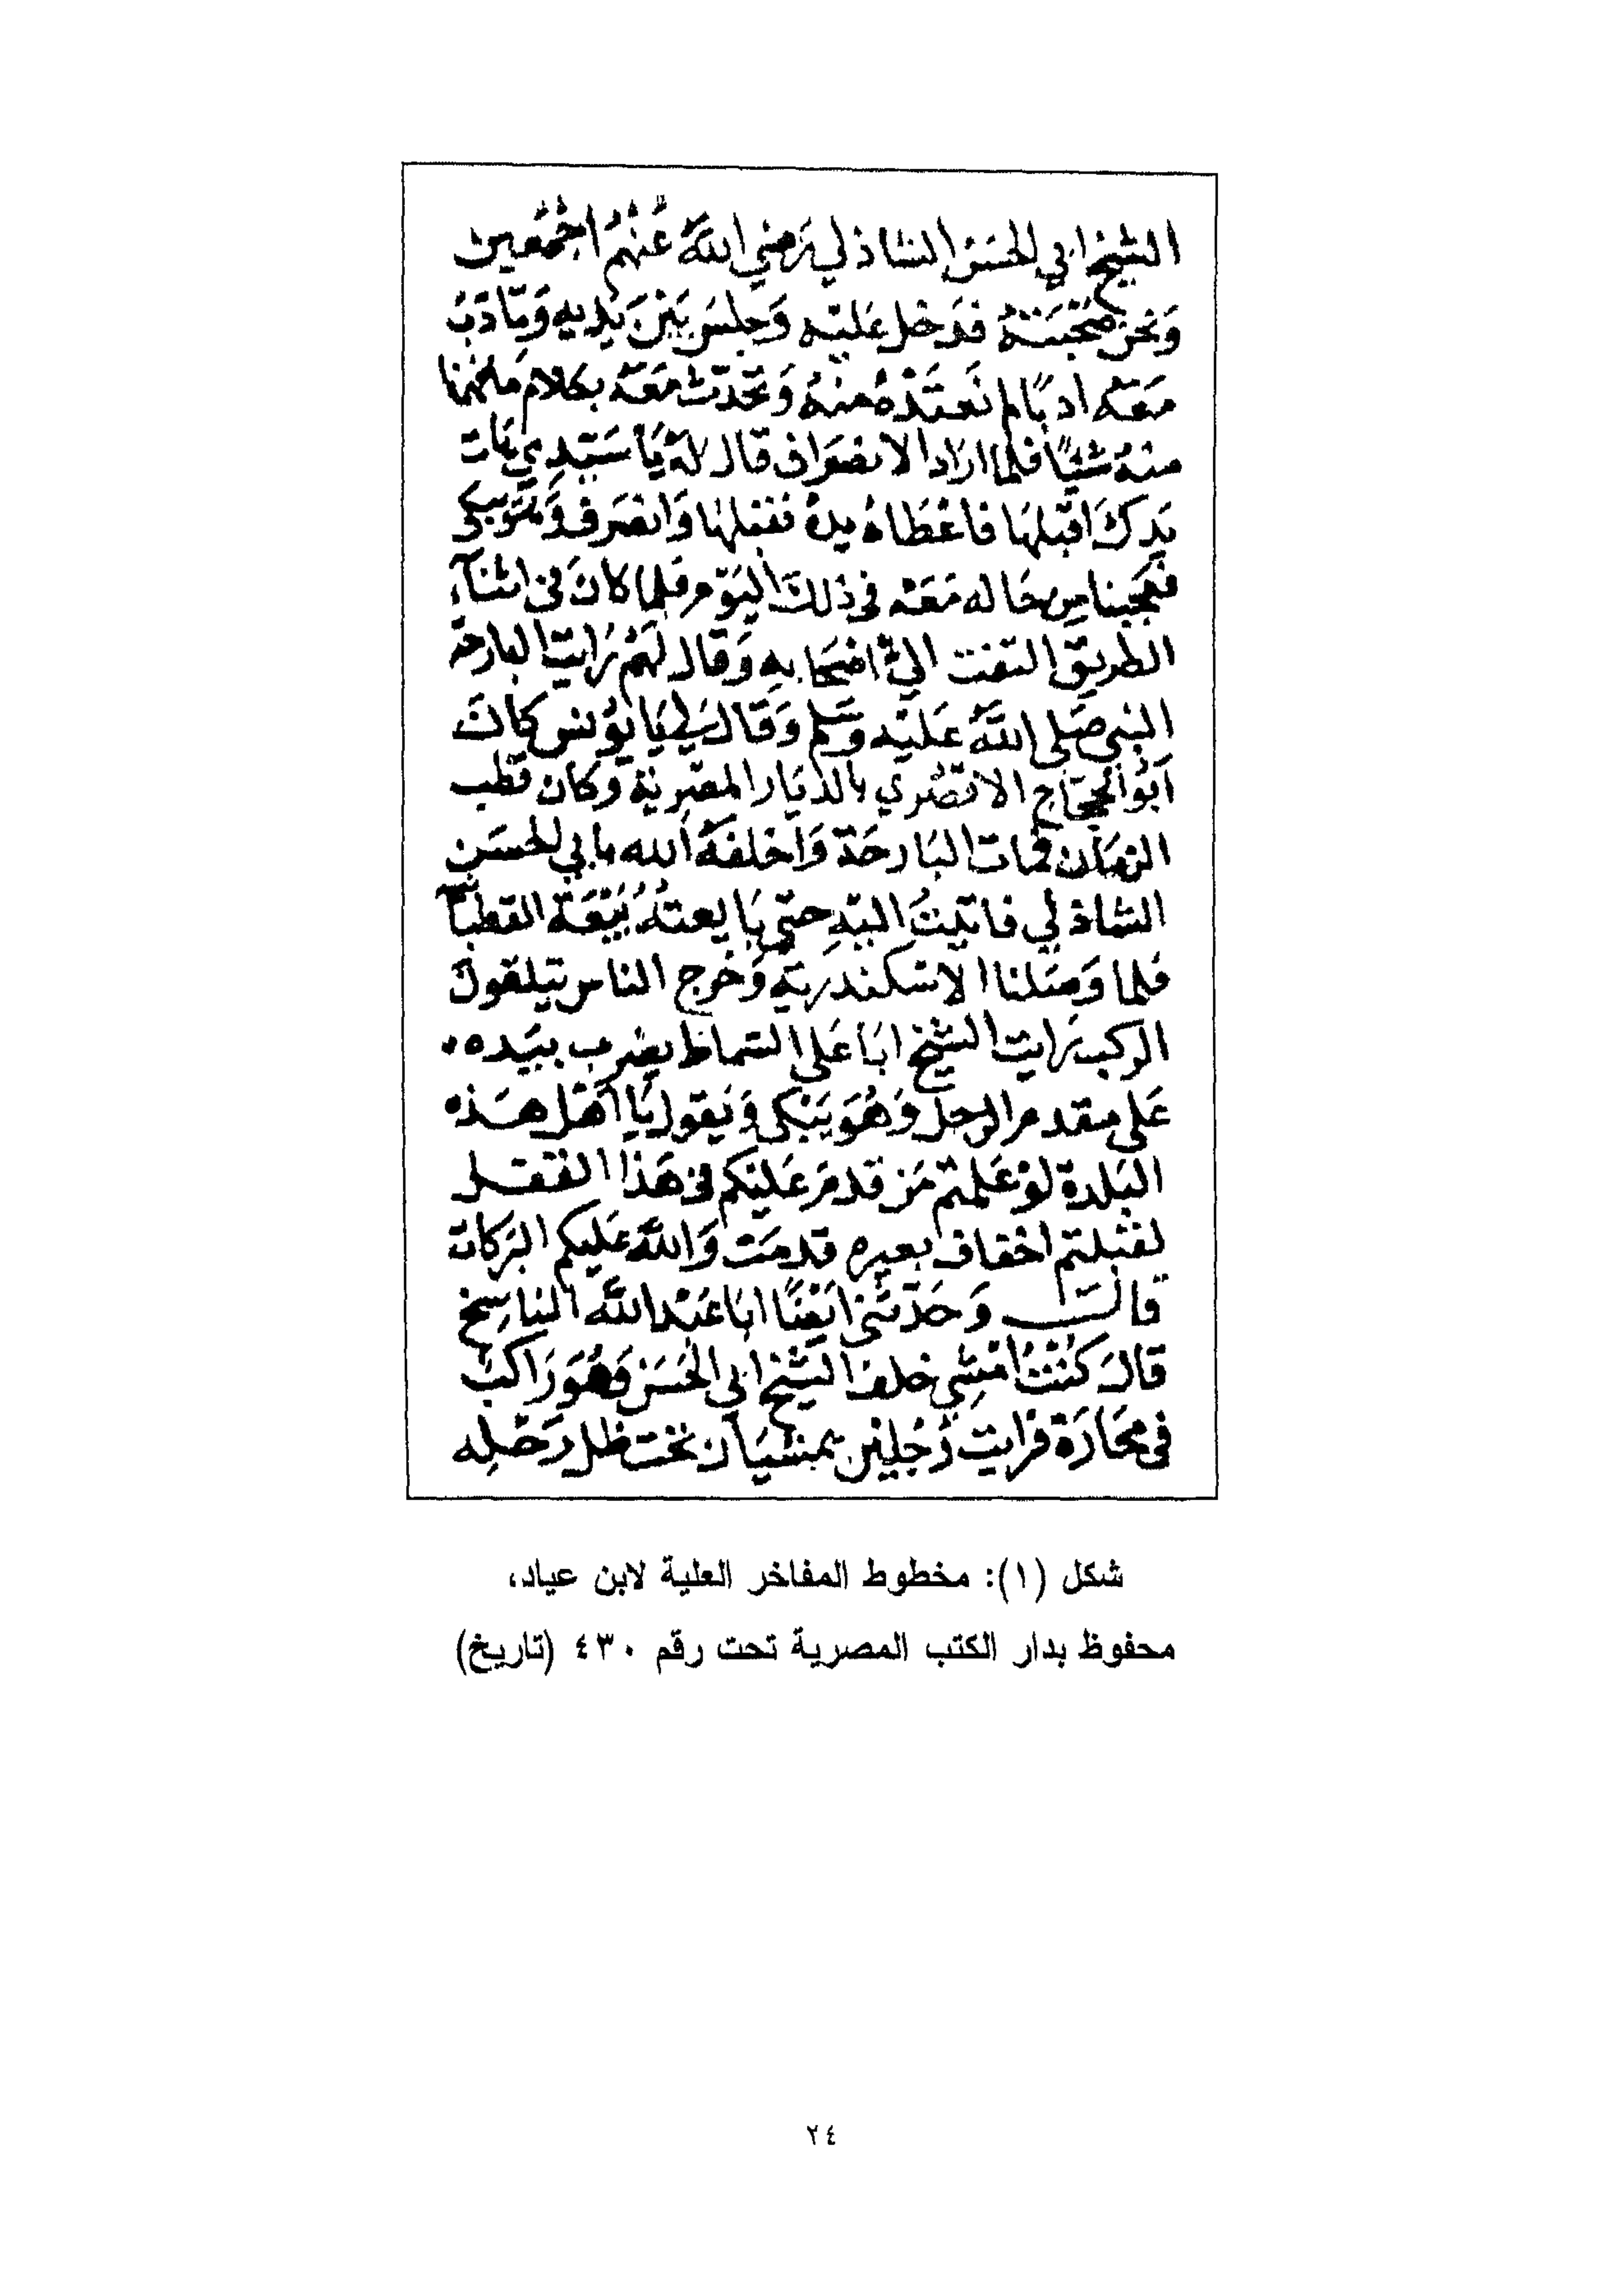 الشيخ ابي الحسن الشاذلي رضي الله عنهم اجمعين
ونحن صحبته فدخل عليه وجلس بين يديه وتادب
معه ادبا لم نعتده منه وتحدث معه بكلام ما فهمنا
منه شيئا فلما اراد الانصراف قال له يا سيدي هات
يدك اقبلها فاعطاه يده فقبلها وانصرف وهو يبكي
فعجبنا من حاله معه في ذلك اليوم فلما كان في اثناء
الطريق التفت الى اصحابه وقال لهم رايت البارحة
النبي صلى الله عليه وسلم وقال لي يا يونس كان
ابو الحجاج الاقصري بالديار المصرية وكان قطب
الزمان فمات البارحة واخلفه الله بابي الحسن
الشاذلي فاتيت اليه حتى بايعته بيعة القطبانية
فلما وصلنا الاسكندرية وخرج الناس يتلقون
الركب رايت الشيخ ابا علي السماط يضرب بيده
على مقدم الرحل وهو يبكي ويقول يا اهل هذه
البلدة لو علمتم من قدم عليكم في هذا القفل
لقبلتم اخفاف بعيره قدمت والله عليكم البركات
قال وحدثني ايضا ابا عبد الله الناسخ
قال كنت امشي خلف الشيخ ابي الحسن وهو راكب
في محارة فرايت رجلين يمشيان تحت ظل رحله
شكل (١): مخطوط المفاخر العلية لابن عياد،
محفوظ بدار الكتب المصرية تحت رقم ٤٣٠ (تاريخ)
٢٤